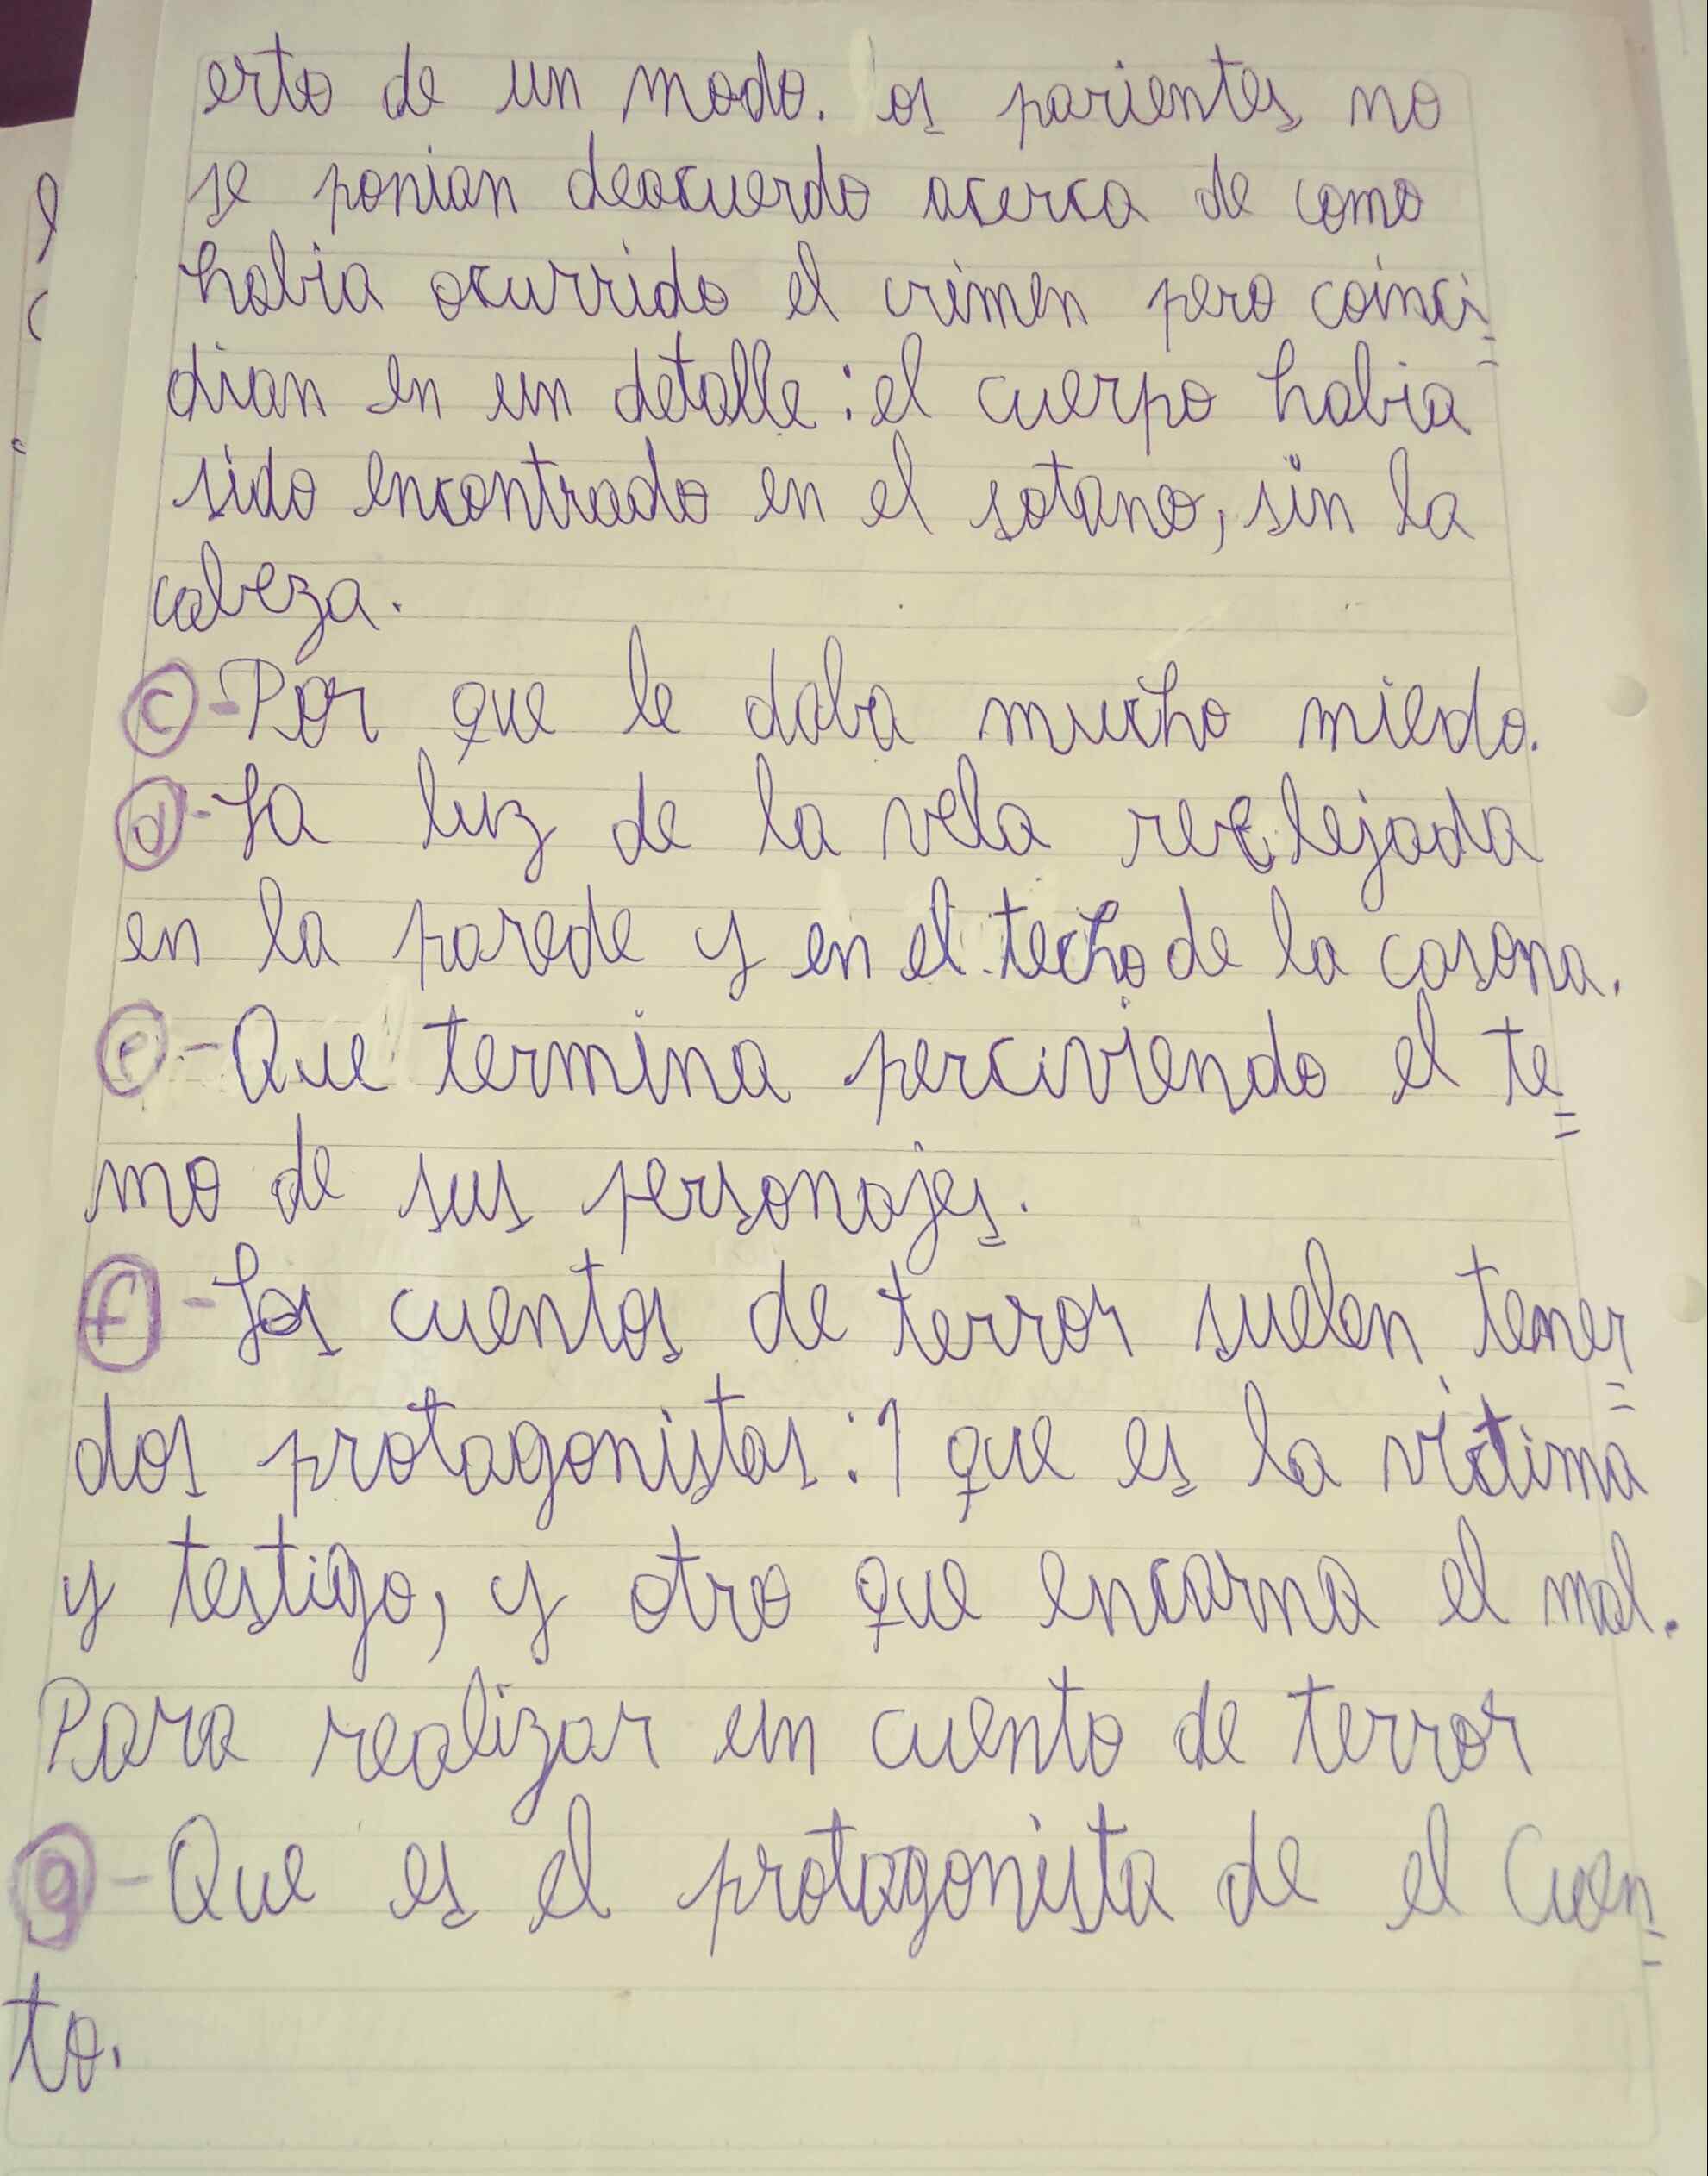 erto de un modo. os parientes no
se ponian deacuerdo acerca de como
habia ocurrido el crimen pero coinci=
dian en un detalle: el cuerpo habia
sido encontrado en el sotano, sin la
cabeza.
c-Por que le daba mucho miedo.
d-La luz de la vela reflejada
en la parede y en el techo de la casona.
e-Que termina perciviendo el te=
mo de sus personajes.
f-Los cuentos de terror suelen tener=
dos protagonistas: 1 que es la víctima
y testigo, y otro que encarna el mal.
Para realizar un cuento de terror
g-Que es el protagonista de el Cuen=
to.